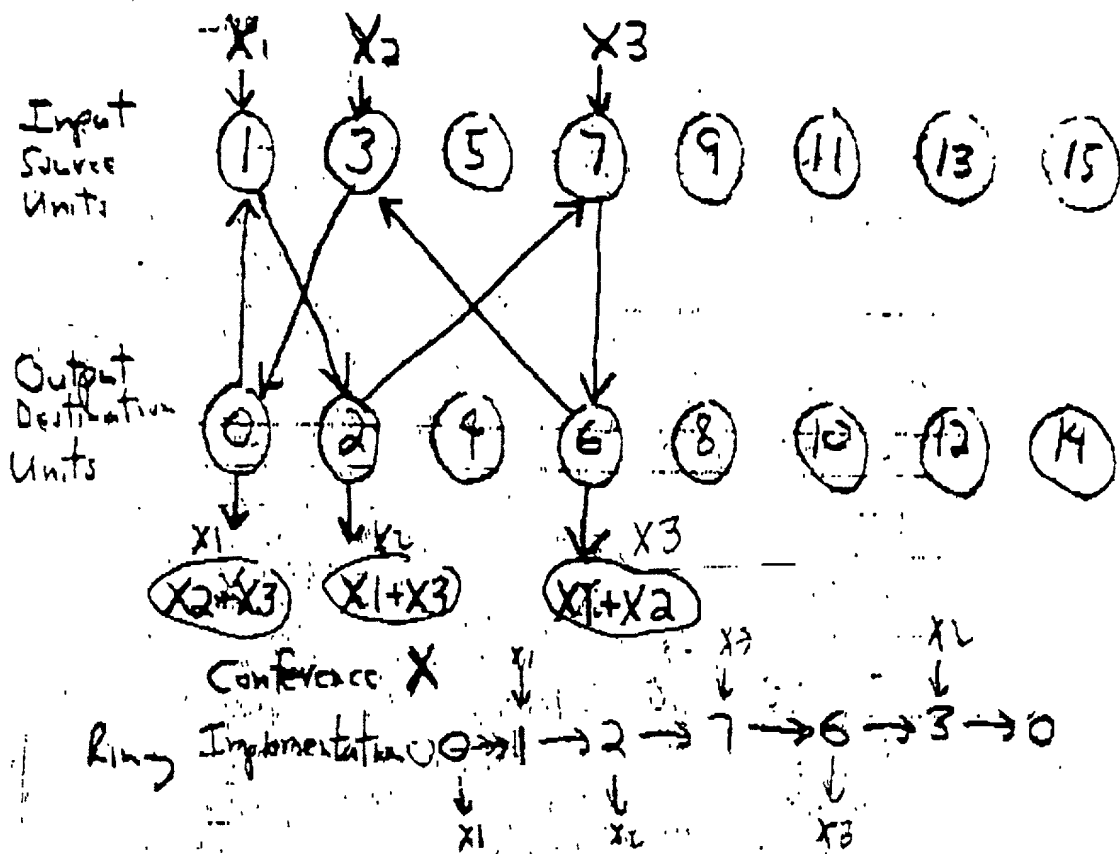 X1 X2 X3
Input
Source
Units
1 3 5 7 9 11 13 15
Output
Destination
Units
0 2 4 6 8 10 12 14
X1 X2 X3
X2+X3 X1+X3 X1+X2
Conference X
X1 X3 X2
Ring Implementation 0 → 1 → 2 → 7 → 6 → 3 → 0
X1 X2 X3